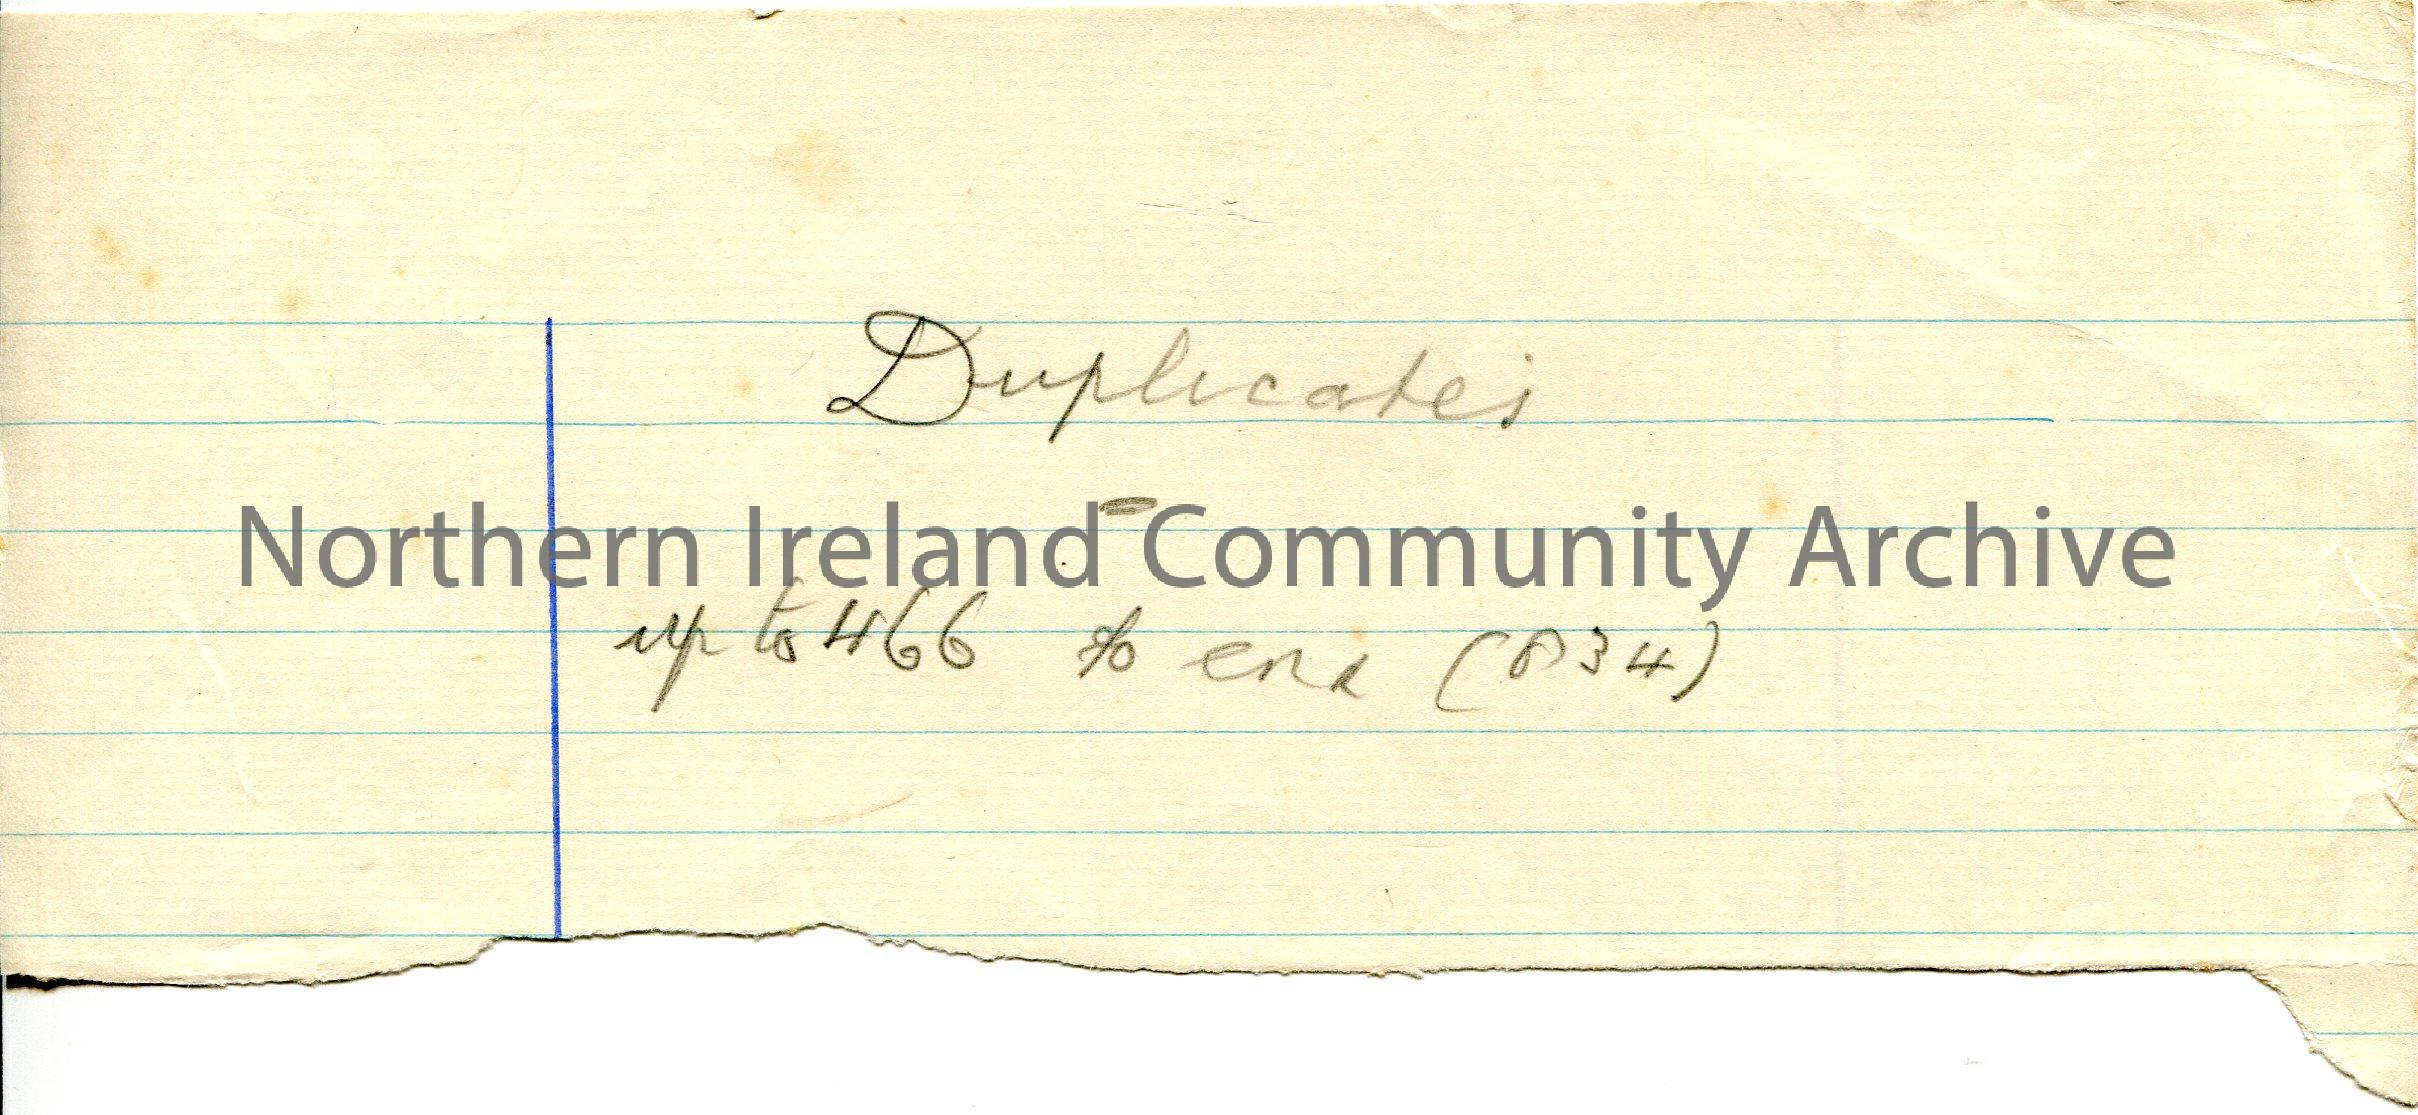 Duplicates
Northern Ireland Community Archive
up to 466 to end (834)